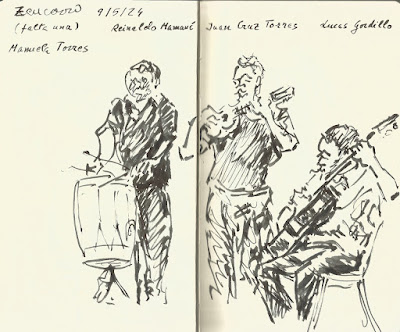 9/5/24
(falta una) Reinaldo Mamaní Juan Cruz Torres Lucas Gordillo
Manuela Torres